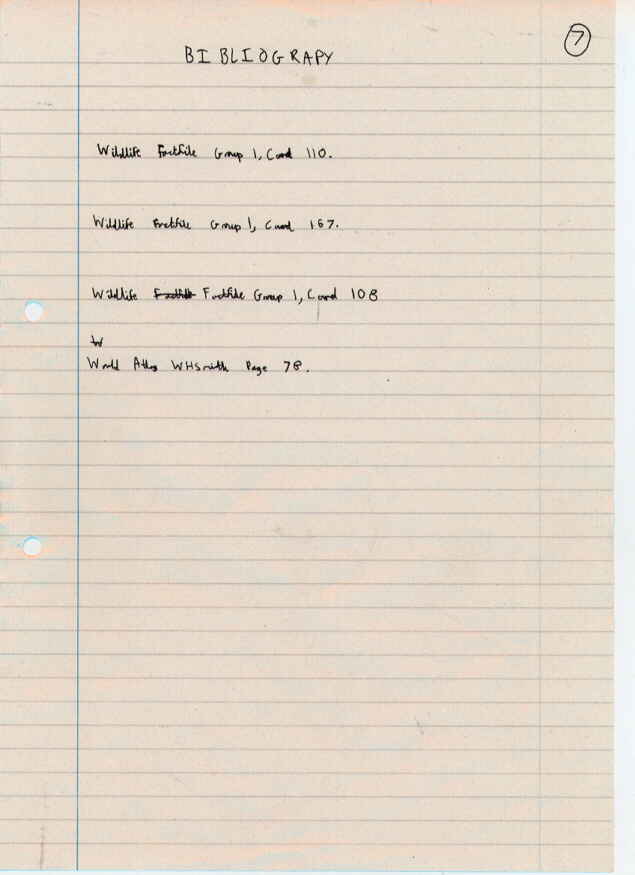 7
BIBLIOGRAPY
Wildlife Factfile Group 1, Card 110.
Wildlife Factfile Group 1, Card 167.
Wildlife Factfile Factfile Group 1, Card 108
W
World Atlas WHSmith Page 78.